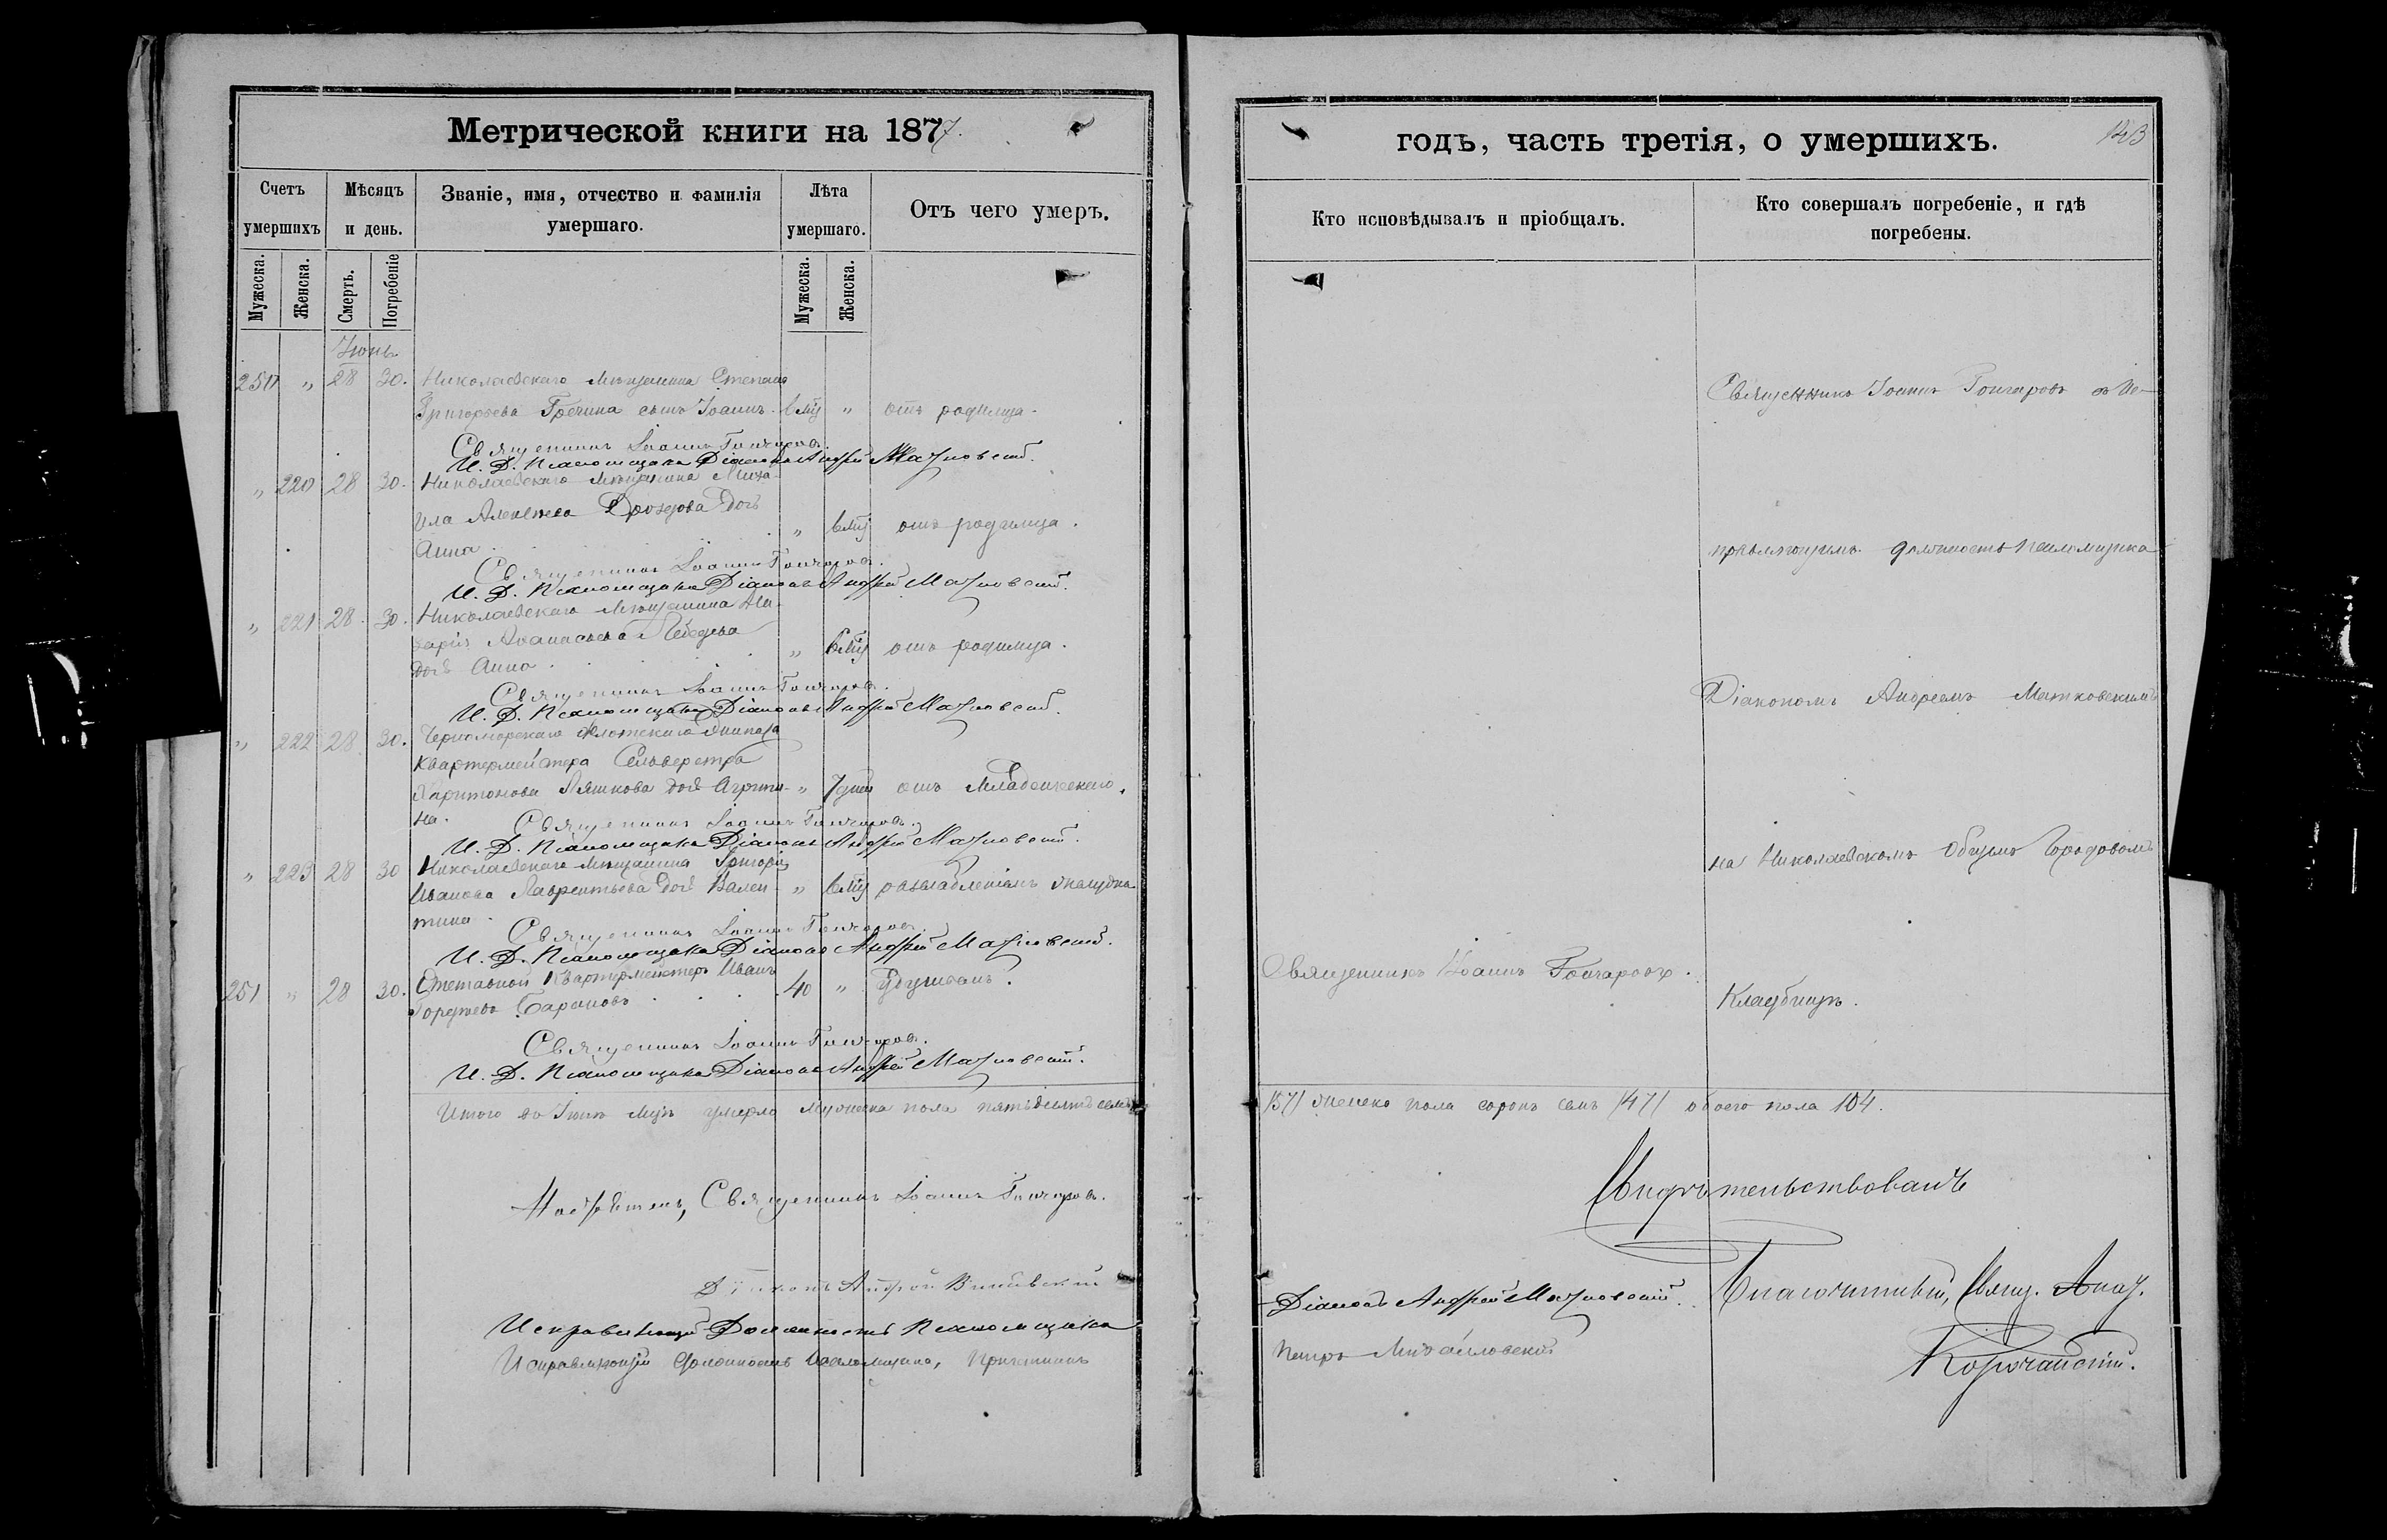 Метрической книги на 1877.
годъ, часть третія, о умершихъ.
143
Счетъ умершихъ
Мѣсяцъ и день.
Званіе, имя, отчество и фамилія умершаго.
Лѣта умершаго.
Отъ чего умеръ.
Кто исповѣдывалъ и пріобщалъ.
Кто совершалъ погребеніе, и гдѣ погребены.
Мужеска.
Женска.
Смерть.
Погребеніе
Мужеска.
Женска.
Іюнь
250 " 28 30. Николаевскаго мѣщанина Степана
Григорьева Гречина сынъ Іоаннъ. " отъ родимца.
Священникъ Іоаннъ Гончаровъ.
И. Д. Псаломщика Діаконъ Андрей Матковскій.
" 220 28 30. Николаевскаго мѣщанина Миха-
ила Алексѣева Дроздова дочь
Анна. " отъ родимца.
Священникъ Іоаннъ Гончаровъ.
И. Д. Псаломщика Діаконъ Андрей Матковскій.
" 221 28. 30. Николаевскаго мѣщанина Ма-
карія Аѳанасьева Лебедева
дочь Анна. " отъ родимца.
Священникъ Іоаннъ Гончаровъ.
И. Д. Псаломщика Діаконъ Андрей Матковскій.
" 222 28 30. Черноморскаго флотскаго экипажа
квартермейстера Сельверстра
Харитонова Ляшкова дочь Агрипи- " 7 дней отъ младенческаго.
на.
Священникъ Іоаннъ Гончаровъ.
И. Д. Псаломщика Діаконъ Андрей Матковскій.
" 223 28 30 Николаевскаго мѣщанина Григорія
Иванова Лаврентьева дочь Вален- " разслабленіемъ желудка
тина.
Священникъ Іоаннъ Гончаровъ.
И. Д. Псаломщика Діаконъ Андрей Матковскій.
251 " 28 30. Отставной квартермейстеръ Иванъ 40 "
Барановъ
Священникъ Іоаннъ Гончаровъ.
И. Д. Псаломщика Діаконъ Андрей Матковскій.
Итого въ Іюнѣ мцѣ умерло мужеска пола пятьдесятъ семь
Настоятель, Священникъ Іоаннъ Гончаровъ.
Андрей
Исправляющій Должность Псаломщика
Исправляющій должность псаломщика, Причетникъ
Священникъ Іоаннъ Гончаровъ съ ис-
правляющимъ должность псаломщика
Діакономъ Андреемъ Матковскимъ
на Николаевскомъ Общемъ Городовомъ
Священникъ Іоаннъ Гончаровъ.
Кладбищѣ.
/57/ женска пола сорокъ семь /47/ обоего пола 104.
Свидѣтельствовалъ
Діаконъ Андрей Матковскій.
Благочинный, Свящ.
Петръ Михайловскій